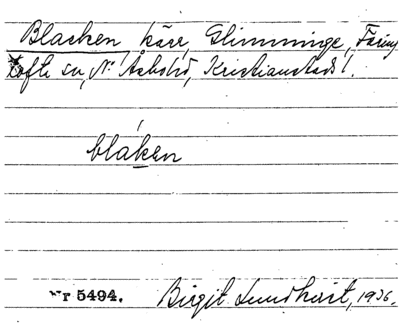 Blacken kärr, Glimminge, Färing
tofta sn, N. Åsbo hd, Kristianstads l.
blák̲en
Nr 5494. Birgit Lundkvist, 1936.